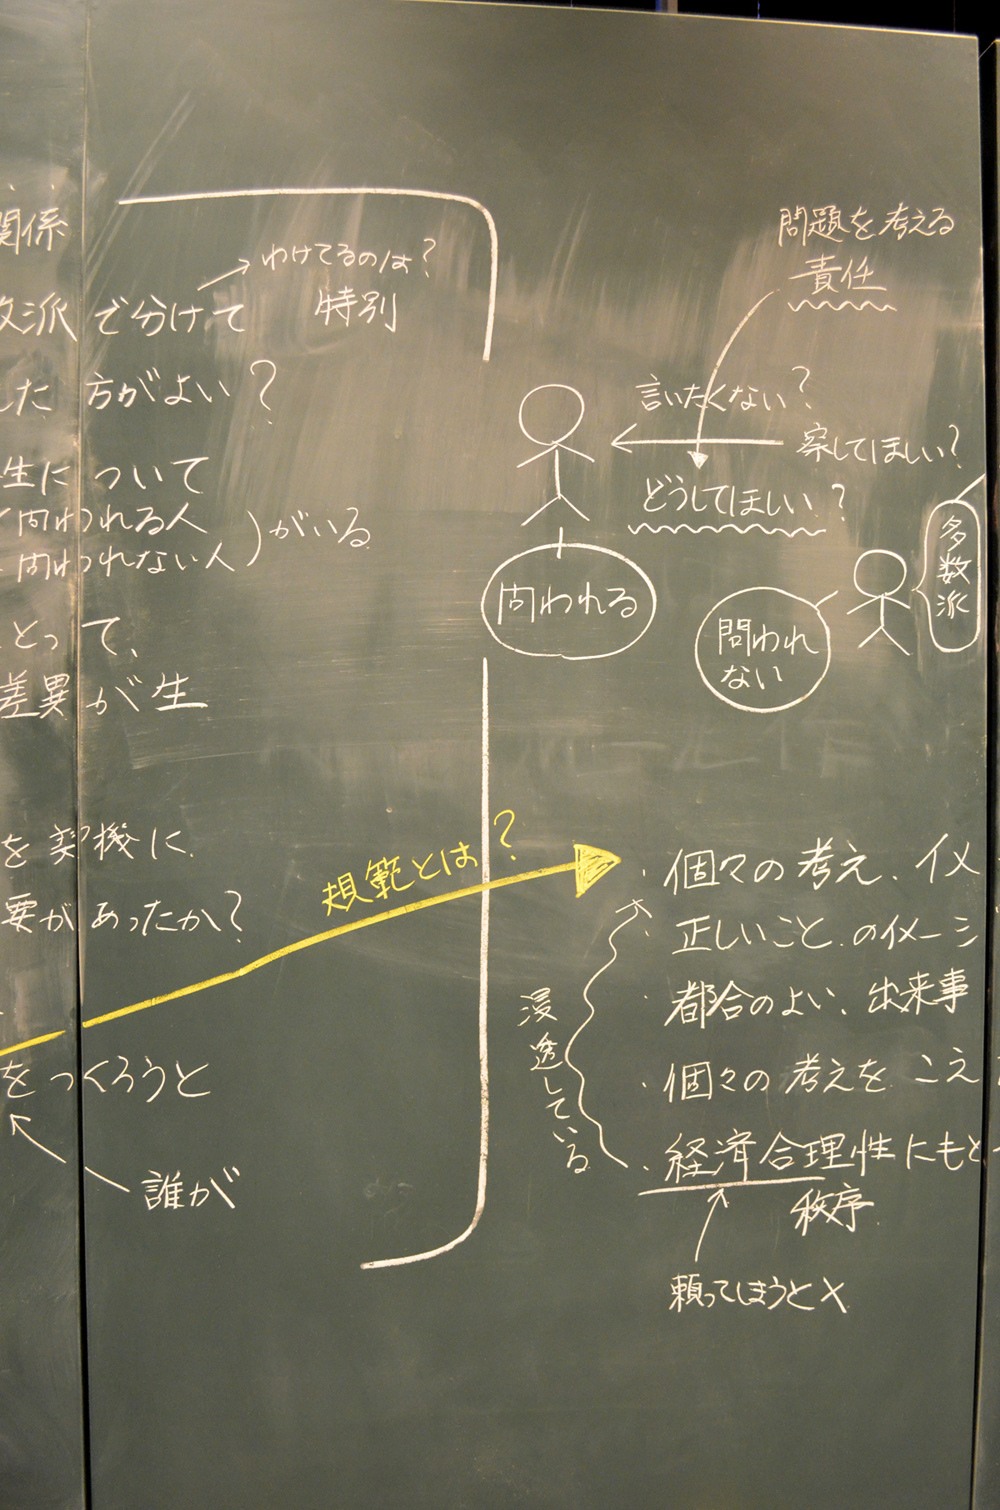 関係
→わけてるのは?
特別
数派で分けて
した方がよい?
生について
問われる人
問われない人
がいる
とって、
差異が生
を契機に
要があったか?
をつくろうと
誰が
問題を考える
責任
言いたくない?
察してほしい?
どうしてほしい?
問われる
多数派
問われ
ない
規範とは?
・個々の考え、イメ
・正しいこと、のイメージ
・都合のよい、出来事
・個々の考えを こえ
・経済合理性にもと
秩序
浸透している
頼ってしまうと×